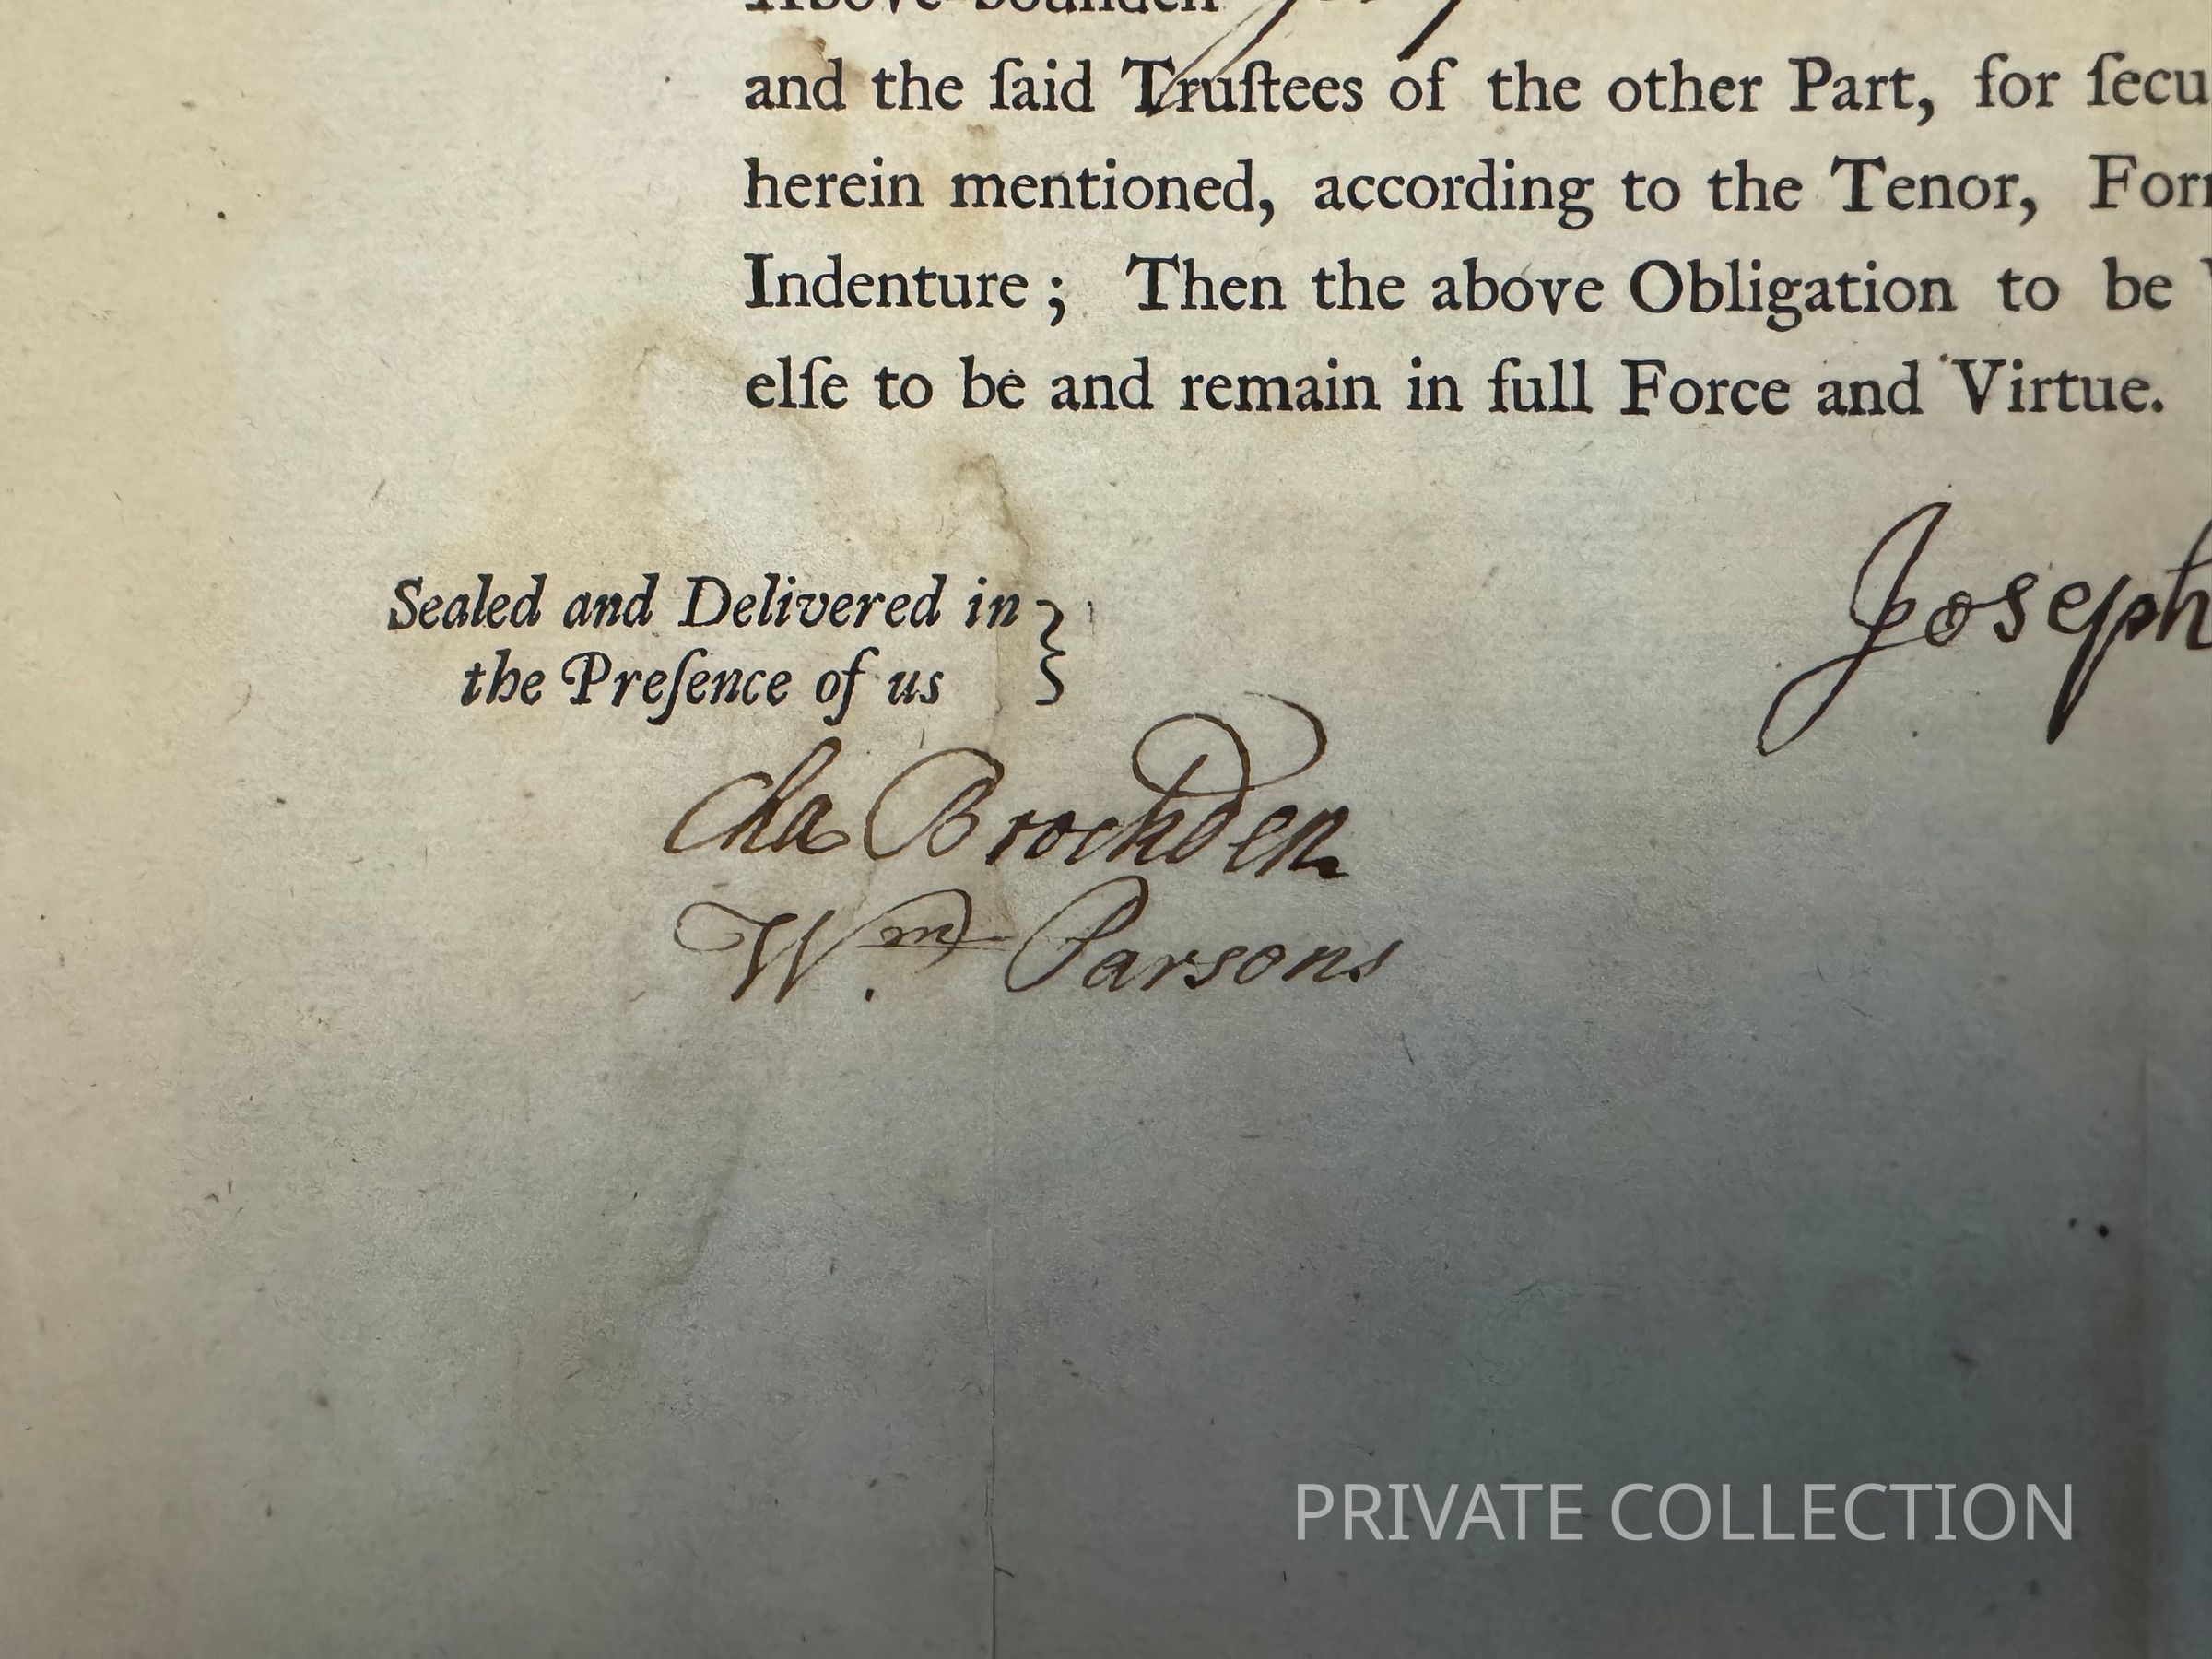 and the ſaid Truſtees of the other Part, for ſecu
herein mentioned, according to the Tenor, For
Indenture; Then the above Obligation to be
elſe to be and remain in full Force and Virtue.
Joseph
Sealed and Delivered in
the Preſence of us
Cha Brockden
Wm Parsons
PRIVATE COLLECTION